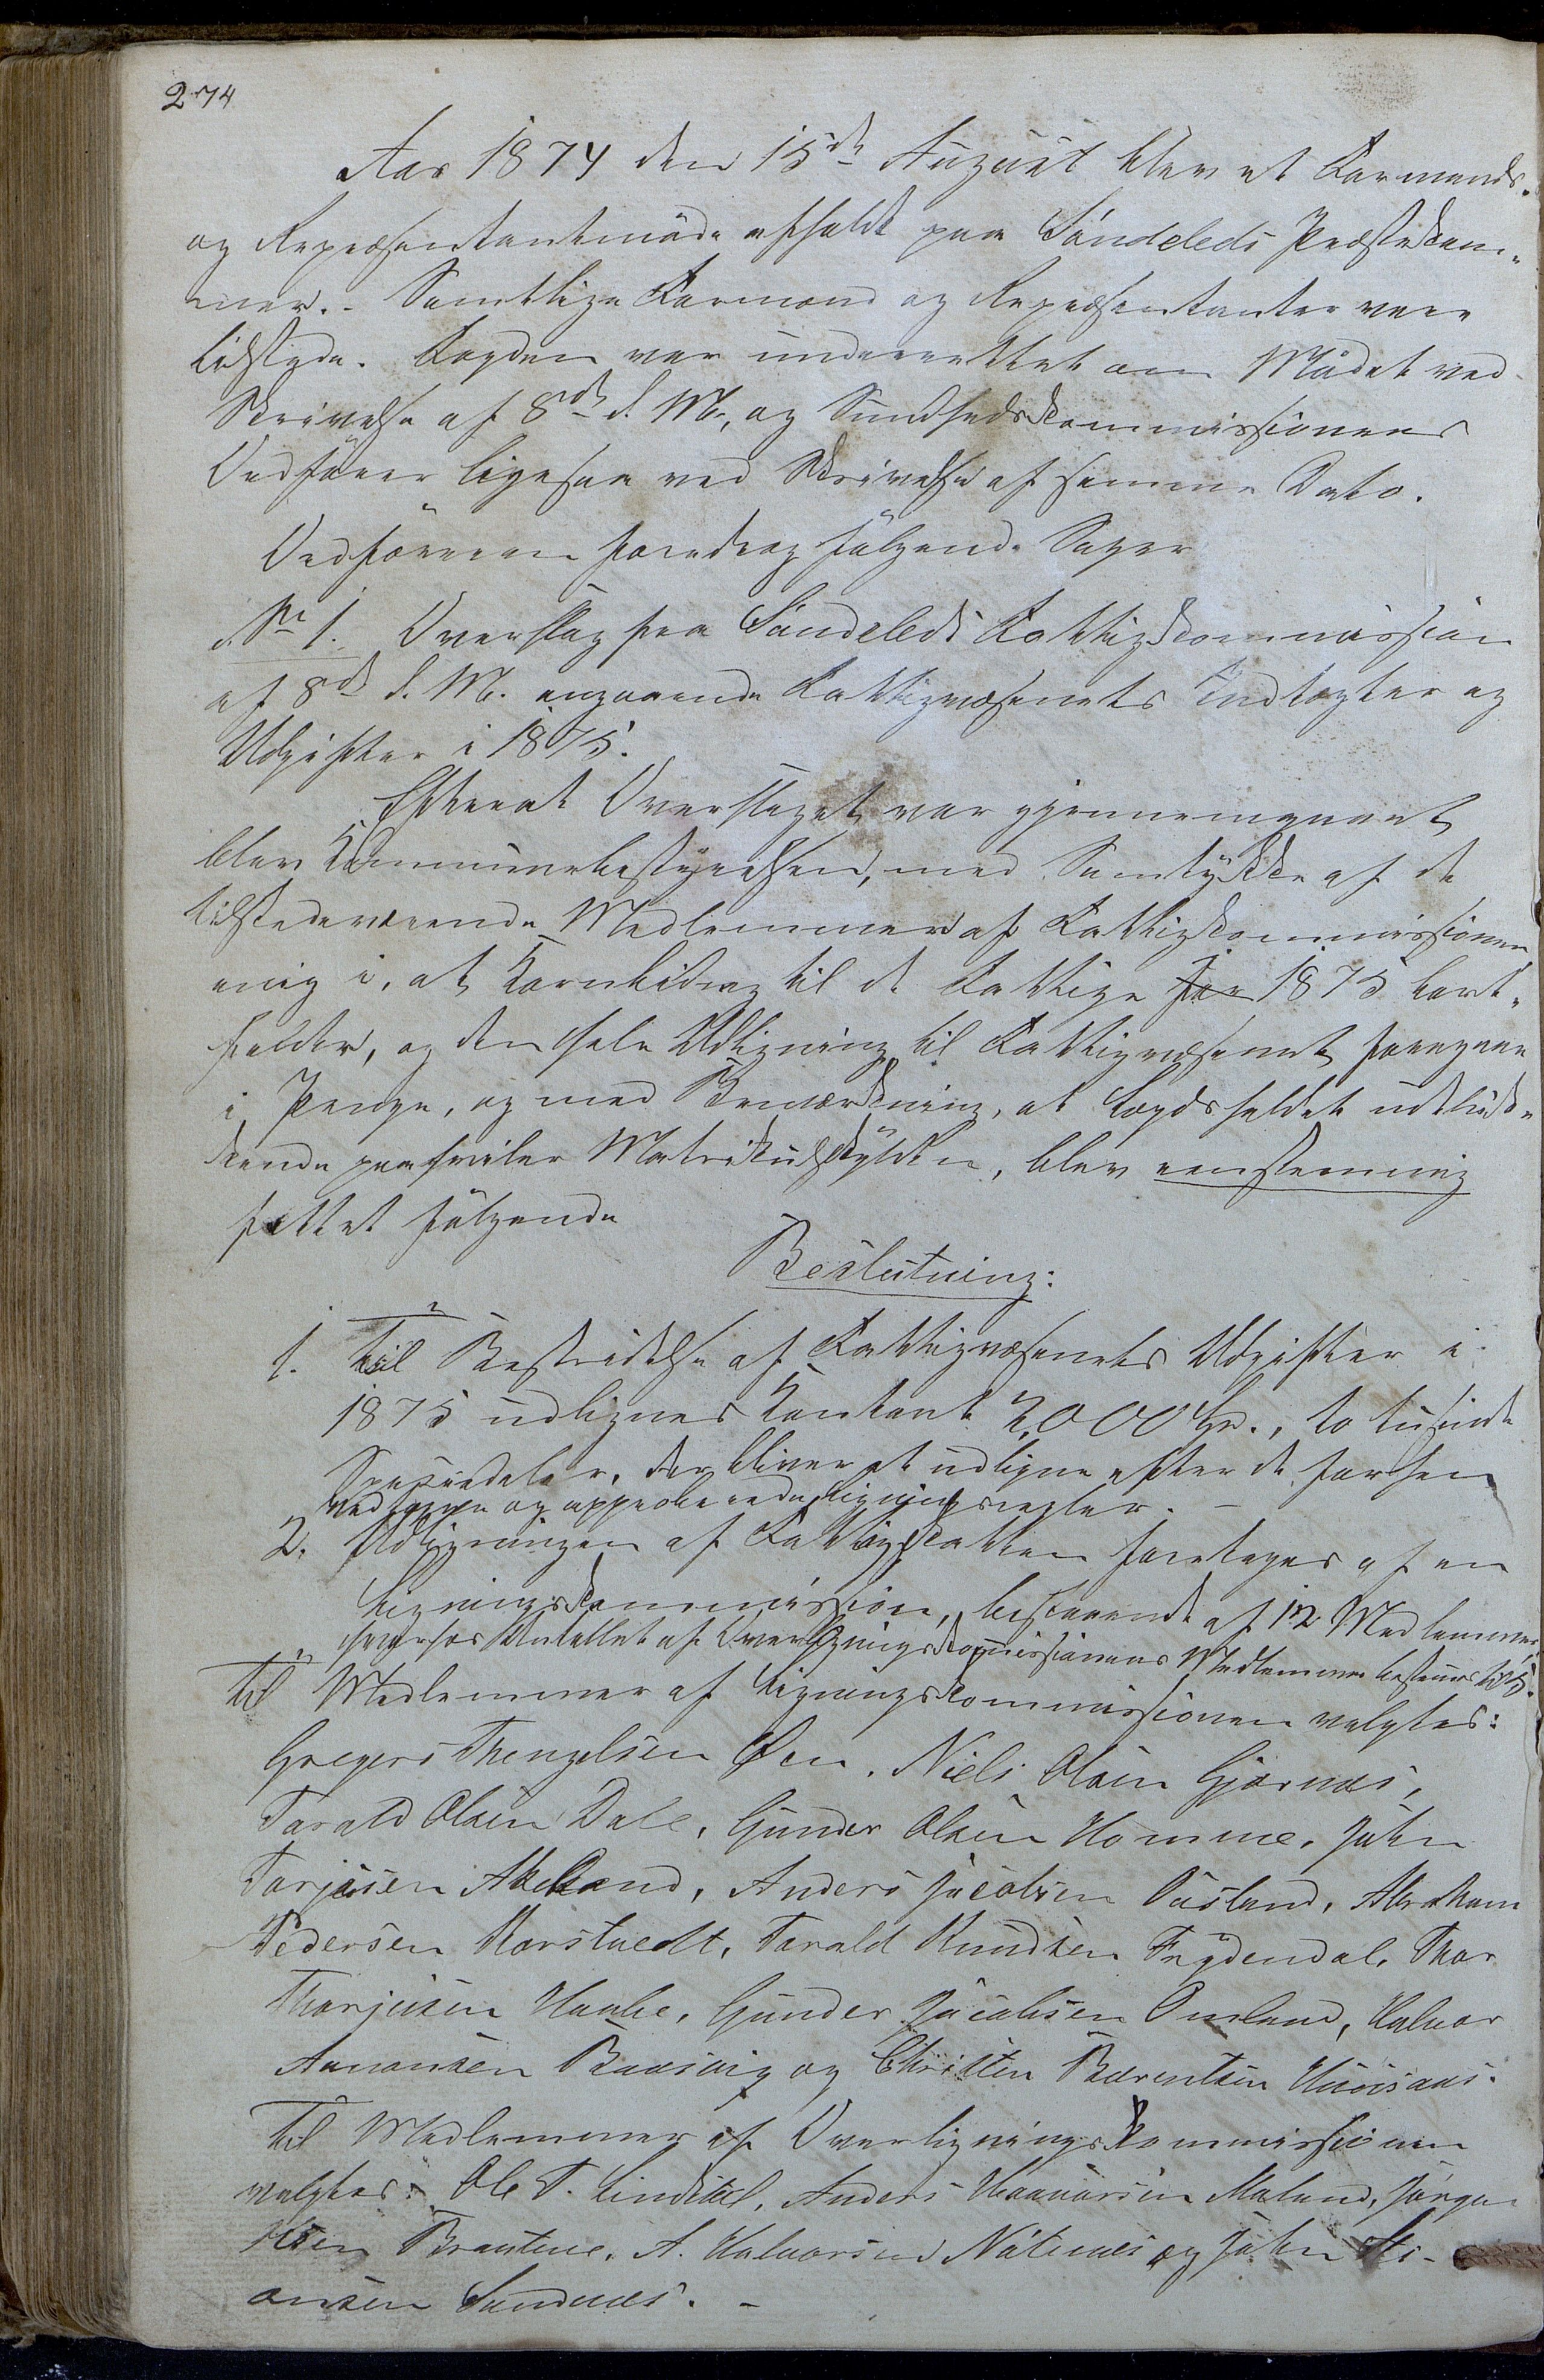 274
Aar 1874 den 15de August blev et Formands-
og Repræsentantmøde afholdt paa Søndeleds Præstekam-
mer. - Samtlige Formænd og Repræsentanter vare
tilstede. Fogden var underrettet om Mødet ved
Skrivelse af 8de d. M., og Sundhedskommissionens
Ordfører ligesaa ved Skrivelse af samme Dato.
Ordføreren foredrog følgende Sager
No 1. Overslag fra Søndeleds Fattigkommission
af 8de d. M. angaaende Fattigvæsenets Indtægter og
Udgifter i 1875.
Efterat Overslaget var gjennemgaaet
blev Kommunebestyrelsen, med Samtykke af de
tilstedeværende Medlemmer af Fattigkommissionen
enig i, at Kornbidrag til de Fattige for 1875 bort-
falder, og den hele Udligning til Fattigvæsenet foregaar
i Penge, og med Bemærkning, at Lægdsholdet udeluk-
kende paahviler Matrikulskylden, blev eenstemmig
fattet følgende
Beslutning:
1. Til Bestridelse af Fattigvæsenets Udgifter i
1875 udlignes kontant 2,000 Spd., to tusinde
Speciedaler, der bliver at udligne efter de forhen
vedtagne og approberede Ligningsregler. -
2. Udligningen af Fattigskatten foretages af en
Ligningskommission, bestaaende af 12 Medlemmer,
hvorhos Antallet af Overligningskommissionens Medlemmer bestemmes til 5.
Til Medlemmer af Ligningskommissionen valgtes:
Gregers Thengelsen Øen, Niels Olsen Gjernæs,
Tarald Olsen Dale, Gunder Olsen Homme, John
Terjesen Akeland, Anders Jacobsen Aasland, Abraham
Pedersen Karstvedt, Tarald Knudsen Frydendal, Thor
Thorjusen Haabe, Gunder Jacobsen Omland, Halvor
Aanonsen Baasvig og Christen Bærentsen Huusaas.
Til Medlemmer af Overligningskommissionen
valgtes: Ole T. Lindstøl, Anders Haavorsen Moland, Jørgen
Brantene, A. Halvorsen Nætnæs og John As-
onsen Sandnæs. -